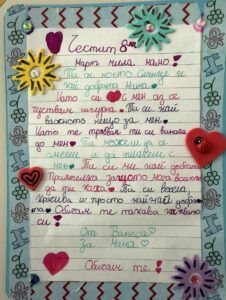 Честит 8ми
Март мила мамо!
Ти си моето слънце и
най добрата мама.
Като си с мен аз се
чуствам сигурна. Ти си най
важното нещо за мен.
Като те трябват ти си винаги
до мен. Ти можеш да се
смееш и да плачеш с
мен. Ти си ми най добрата
Приятелка защото мога всичко
да ти кажа. Ти си весела,
красива и просто най най добра
та. Обичам те такава каквато
си!
От Ванеса
За Мама
Обичам те!